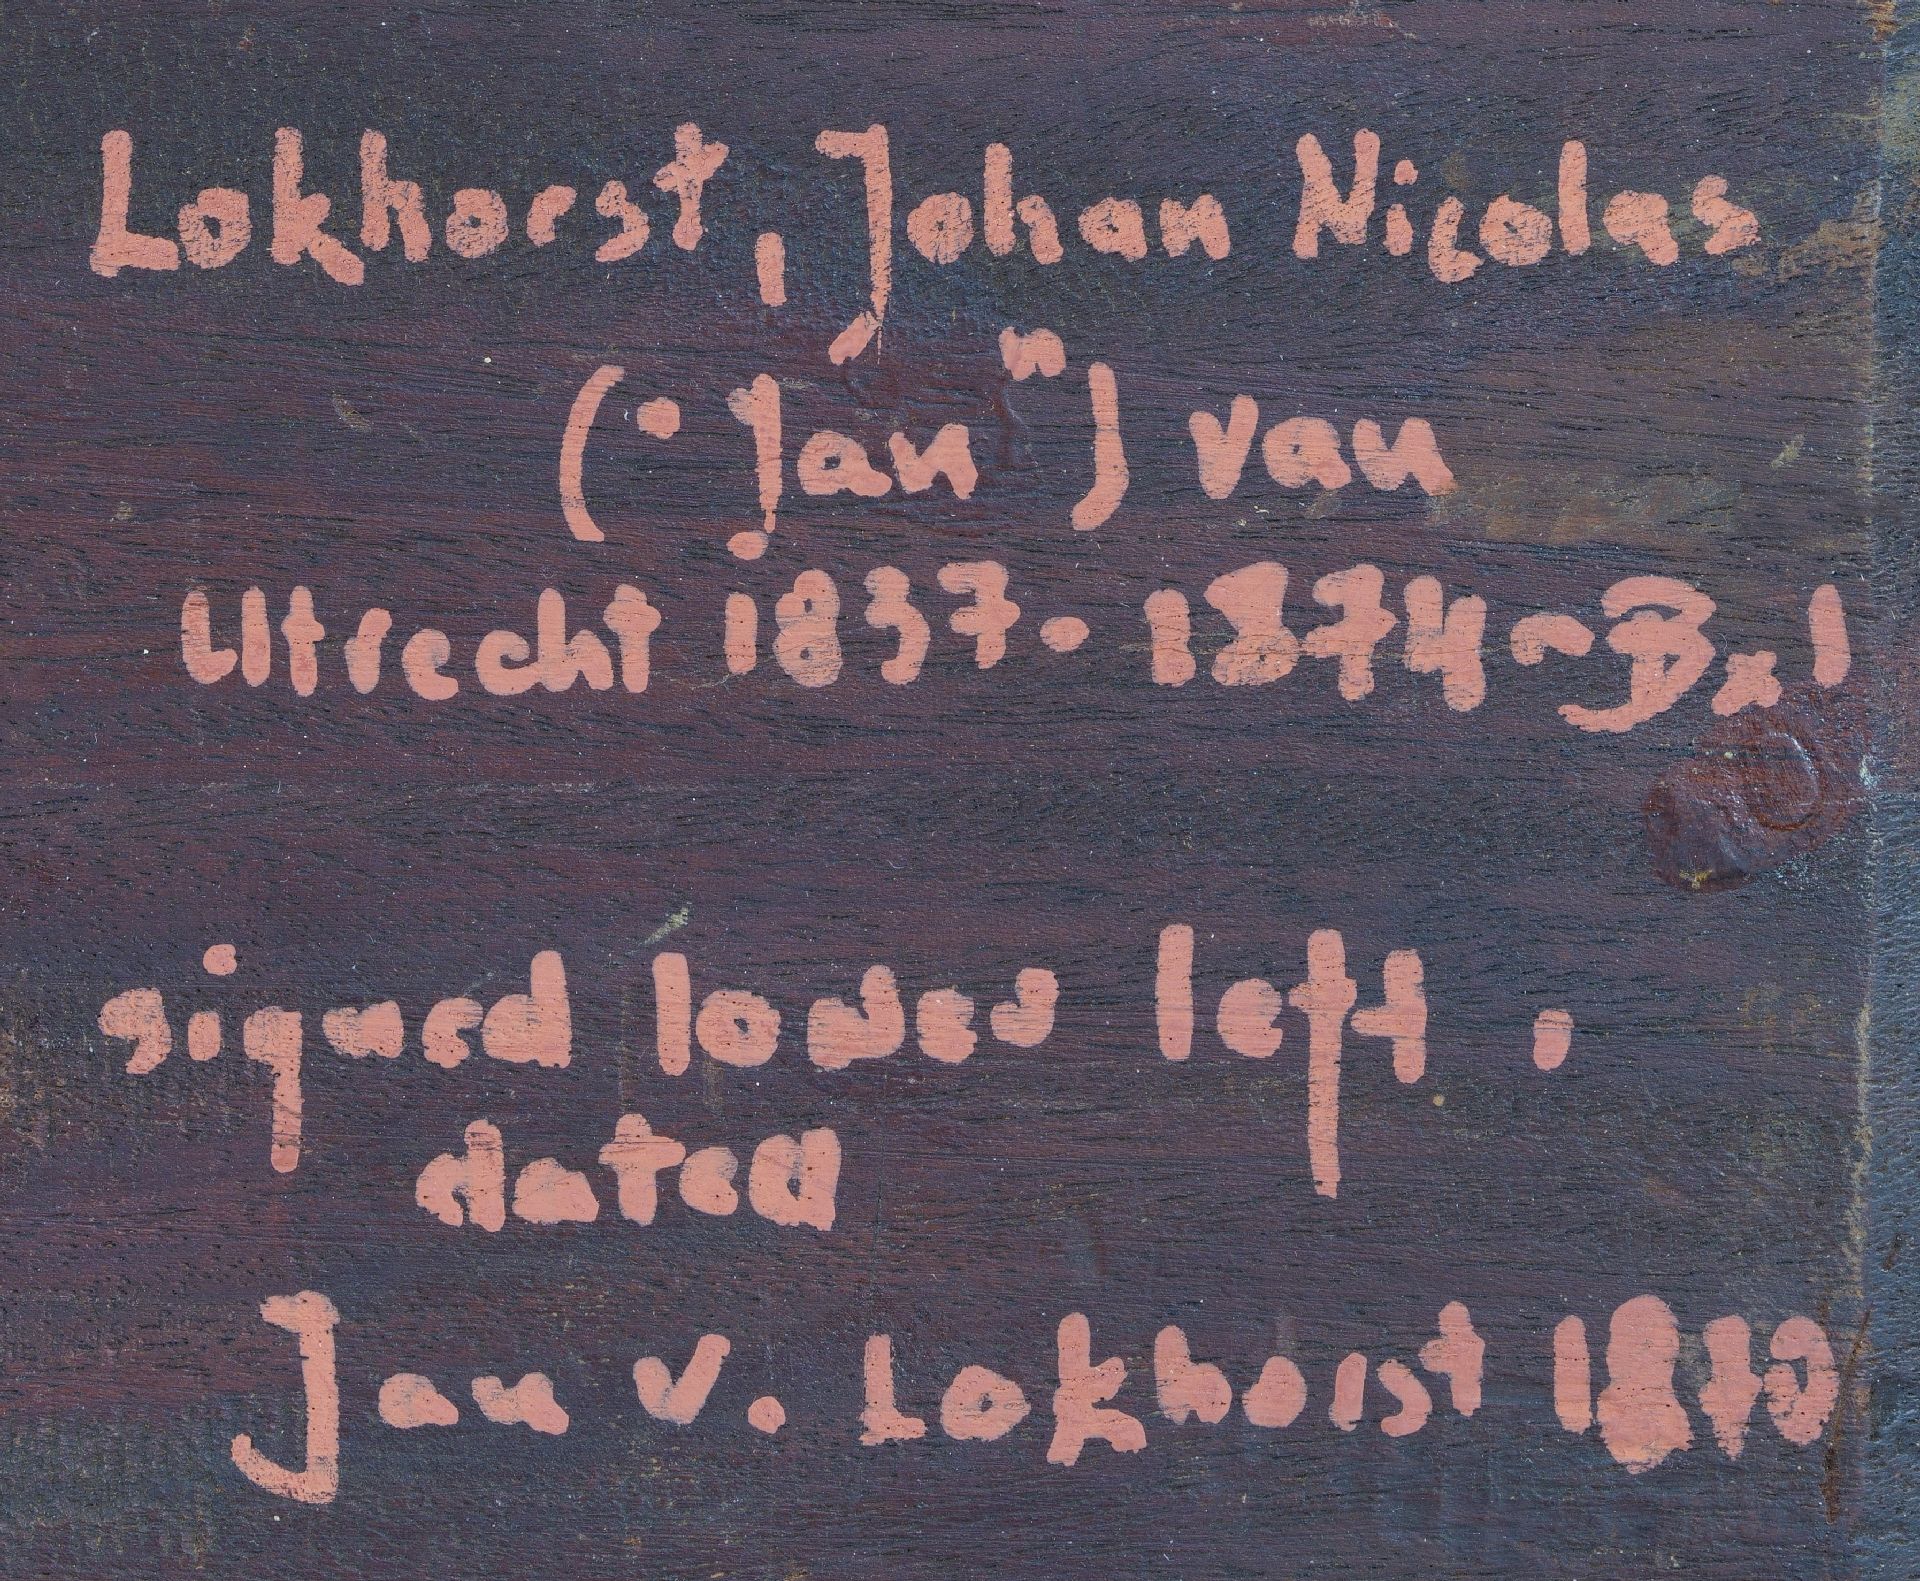 Lokhorst, Johan Nicolas
("Jan") van
Utrecht 1837-1874 - Bxl
signed lower left.
dated
Jan v. Lokhorst 1870